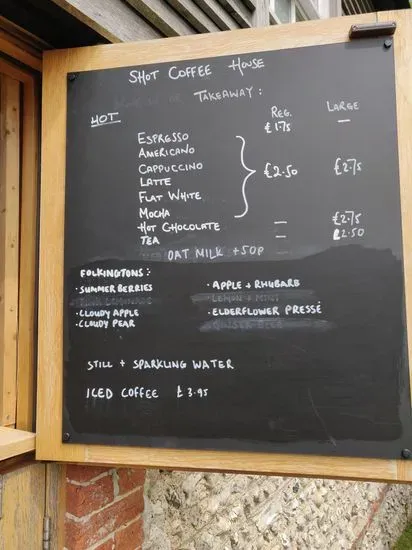 SHOT COFFEE HOUSE
TAKEAWAY:
HOT
REG. LARGE
ESPRESSO £1.75 —
AMERICANO
CAPPUCCINO £2.50 £2.75
LATTE
FLAT WHITE
MOCHA
HOT CHOCOLATE — £2.75
TEA — £2.50
OAT MILK +50P
FOLKINGTONS:
· SUMMER BERRIES · APPLE + RHUBARB
LEMON + MINT
· CLOUDY APPLE · ELDERFLOWER PRESSÉ
· CLOUDY PEAR GINGER BEER
STILL + SPARKLING WATER
ICED COFFEE £3.95